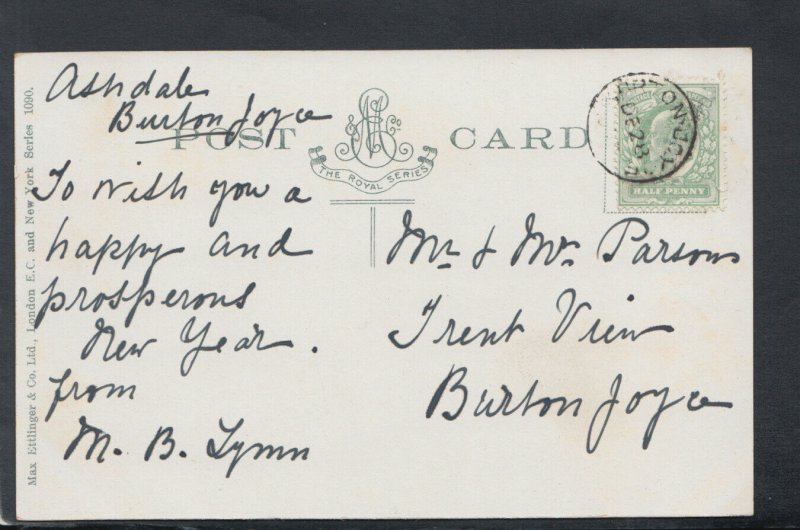 Ashdale
Burton Joyce
POST CARD
THE ROYAL SERIES
HALF PENNY
DE 28
To wish you a
happy and
prosperous
New Year.
from
M. B. Lynn
Mr & Mrs Parsons
Trent View
Burton Joyce
Max Ettlinger & Co. Ltd., London E.C. and New York Series 1090.